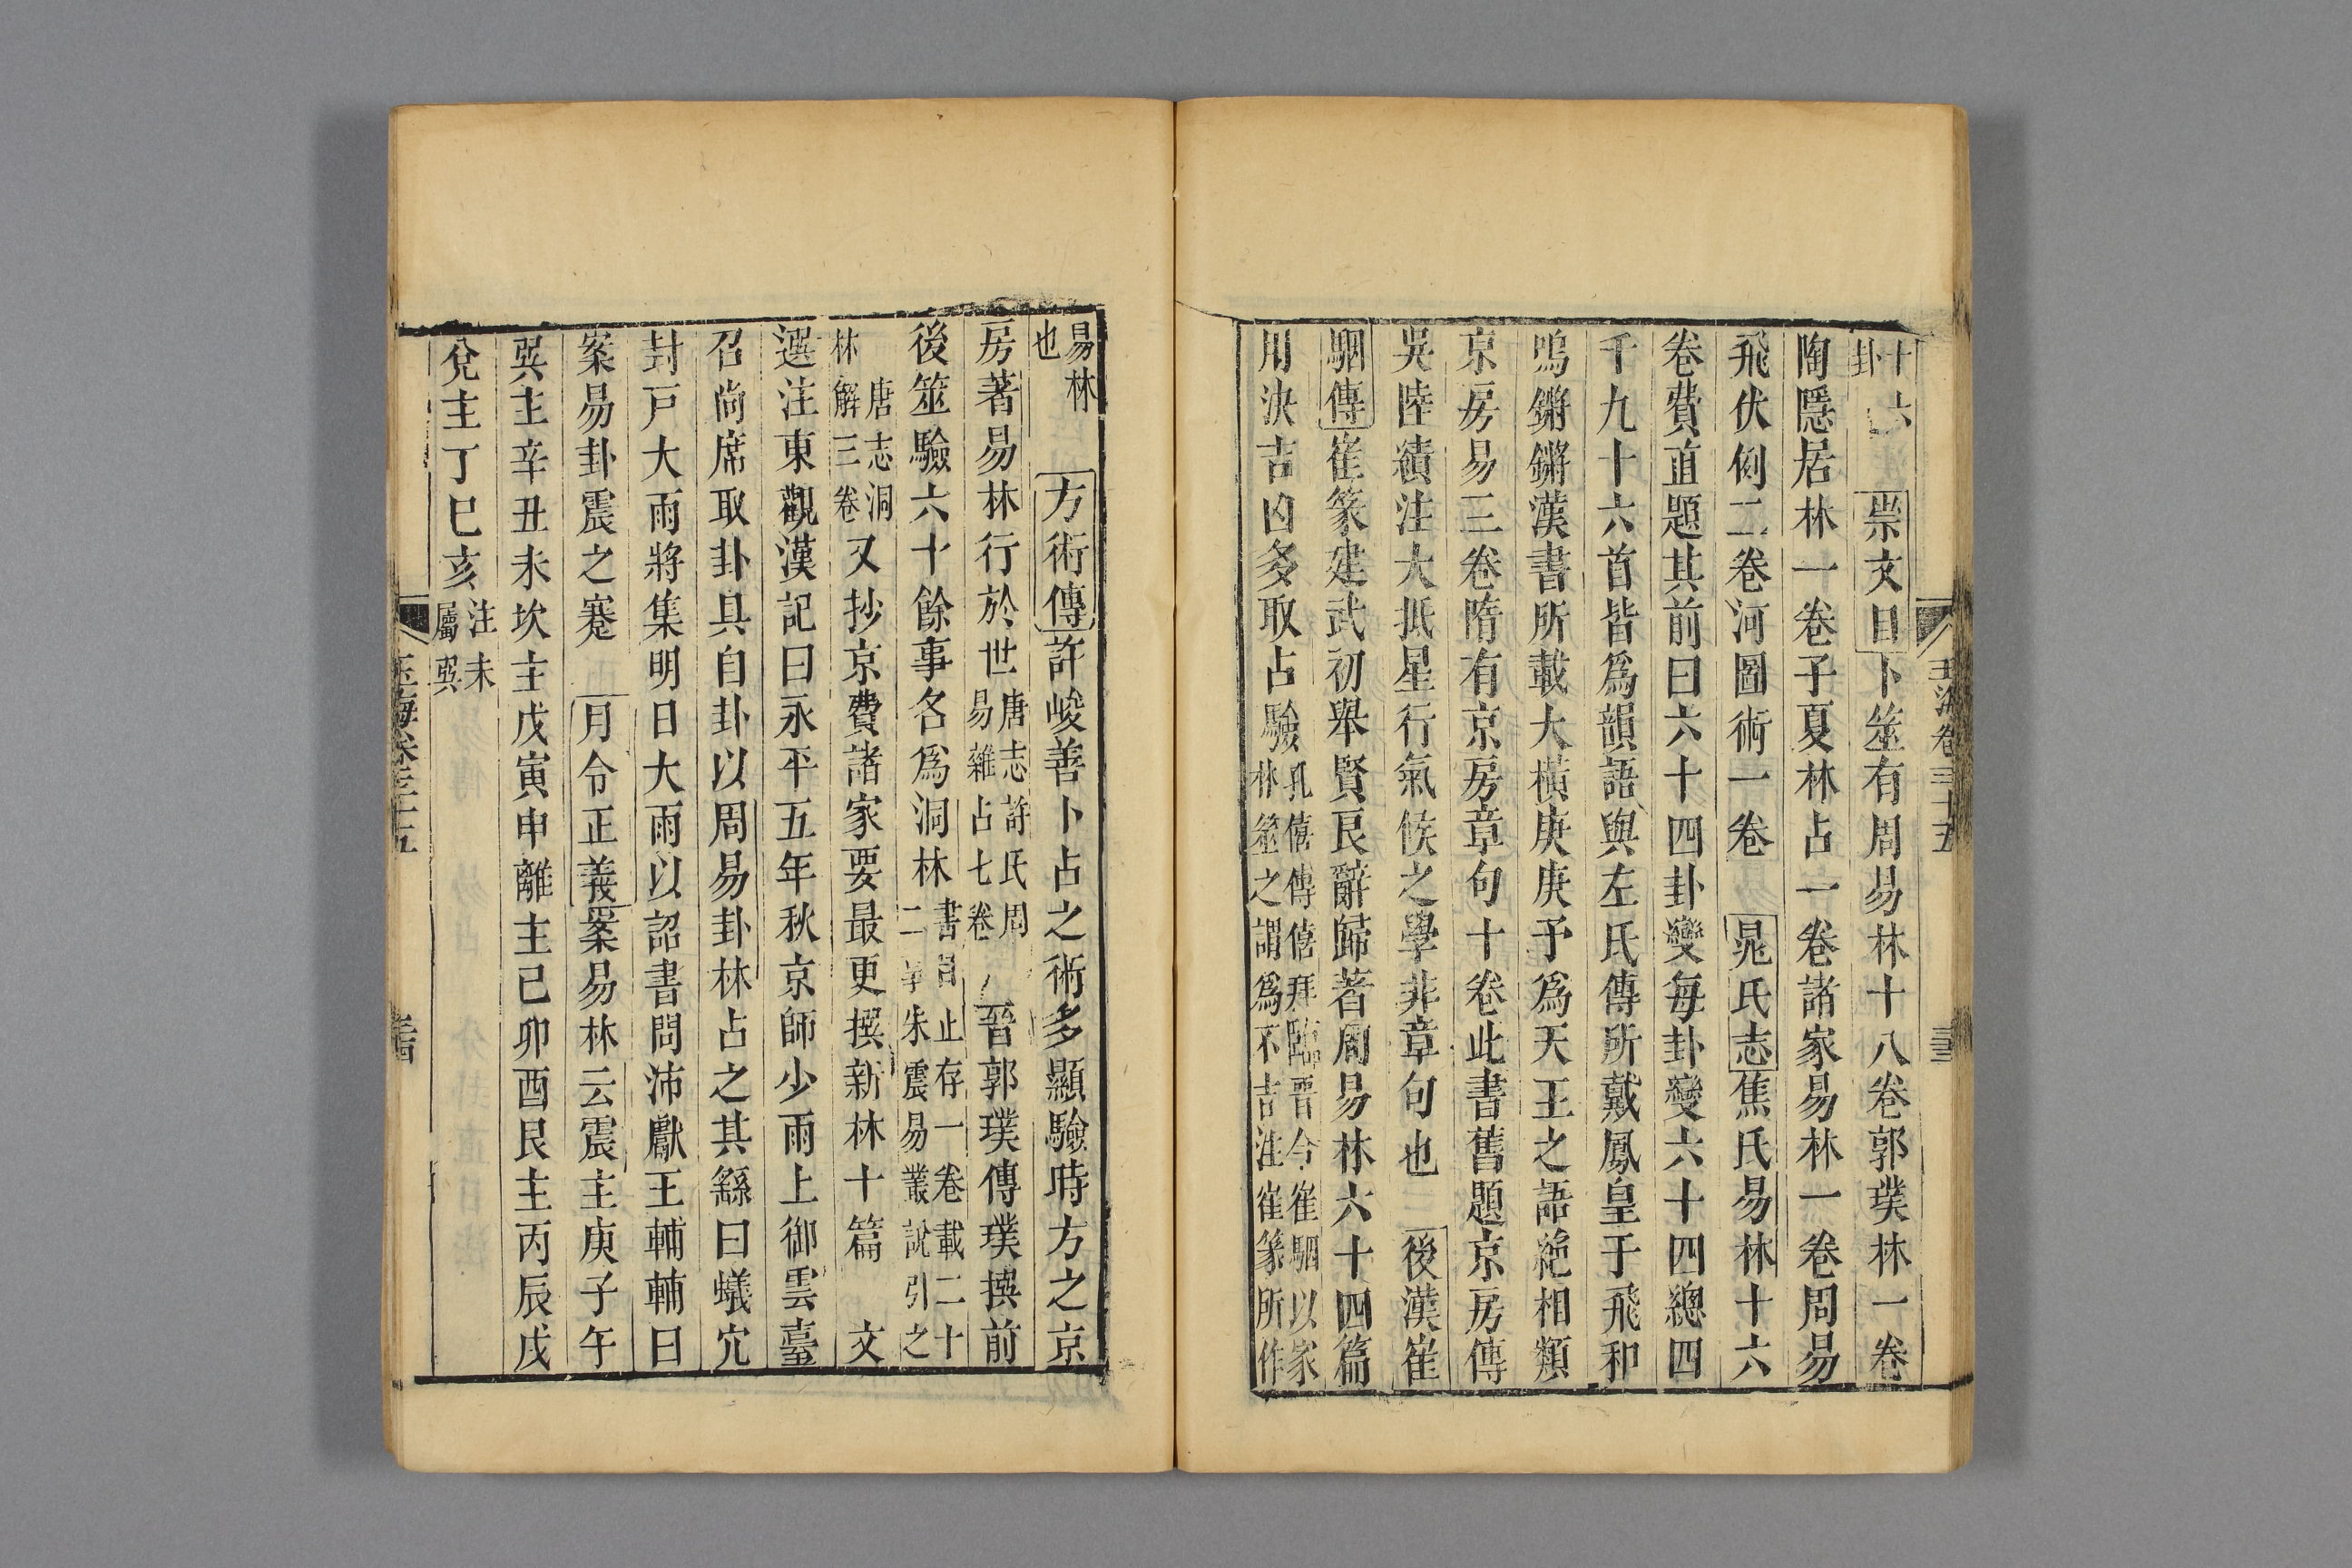 十六
卦
崇文目卜筮有周易林十八卷郭璞林一卷
陶隱居林一卷子夏林占一卷諸家易林一卷周易
飛伏例二卷河圖術一卷 晁氏志焦氏易林十六
卷費直題其前曰六十四卦變每卦變六十四總四
千九十六首皆爲韻語與左氏傳所載鳳皇于飛和
鳴鏘鏘漢書所載大橫庚庚予爲天王之語絶相類
京房易三卷隋有京房章句十卷此書舊題京房傳
吳陸績注大抵星行氣候之學非章句也 後漢崔
駰傳崔篆建武初舉賢良辭歸著周易林六十四篇
用決吉凶多取占驗
孔僖傳僖拜臨晉令崔駰以家
林筮之謂爲不吉注崔篆所作
玉海卷三十五
易林
也
方術傳許峻善卜占之術多顯驗時方之京
房著易林行於世
唐志許氏周
易雜占七卷
晉郭璞傳璞撰前
後筮驗六十餘事名爲洞林
書目止存一卷載二十
二事朱震易叢說引之
唐志洞
林解三卷
又抄京費諸家要最更撰新林十篇 文
選注東觀漢記曰永平五年秋京師少雨上御雲臺
召尚席取卦具自卦以周易卦林占之其繇曰蟻穴
封戶大雨將集明日大雨以詔書問沛獻王輔輔曰
案易卦震之蹇 月令正義案易林云震主庚子午
巽主辛丑未坎主戊寅申離主己卯酉艮主丙辰戌
兌主丁巳亥
注未
屬巽
玉海卷三十五